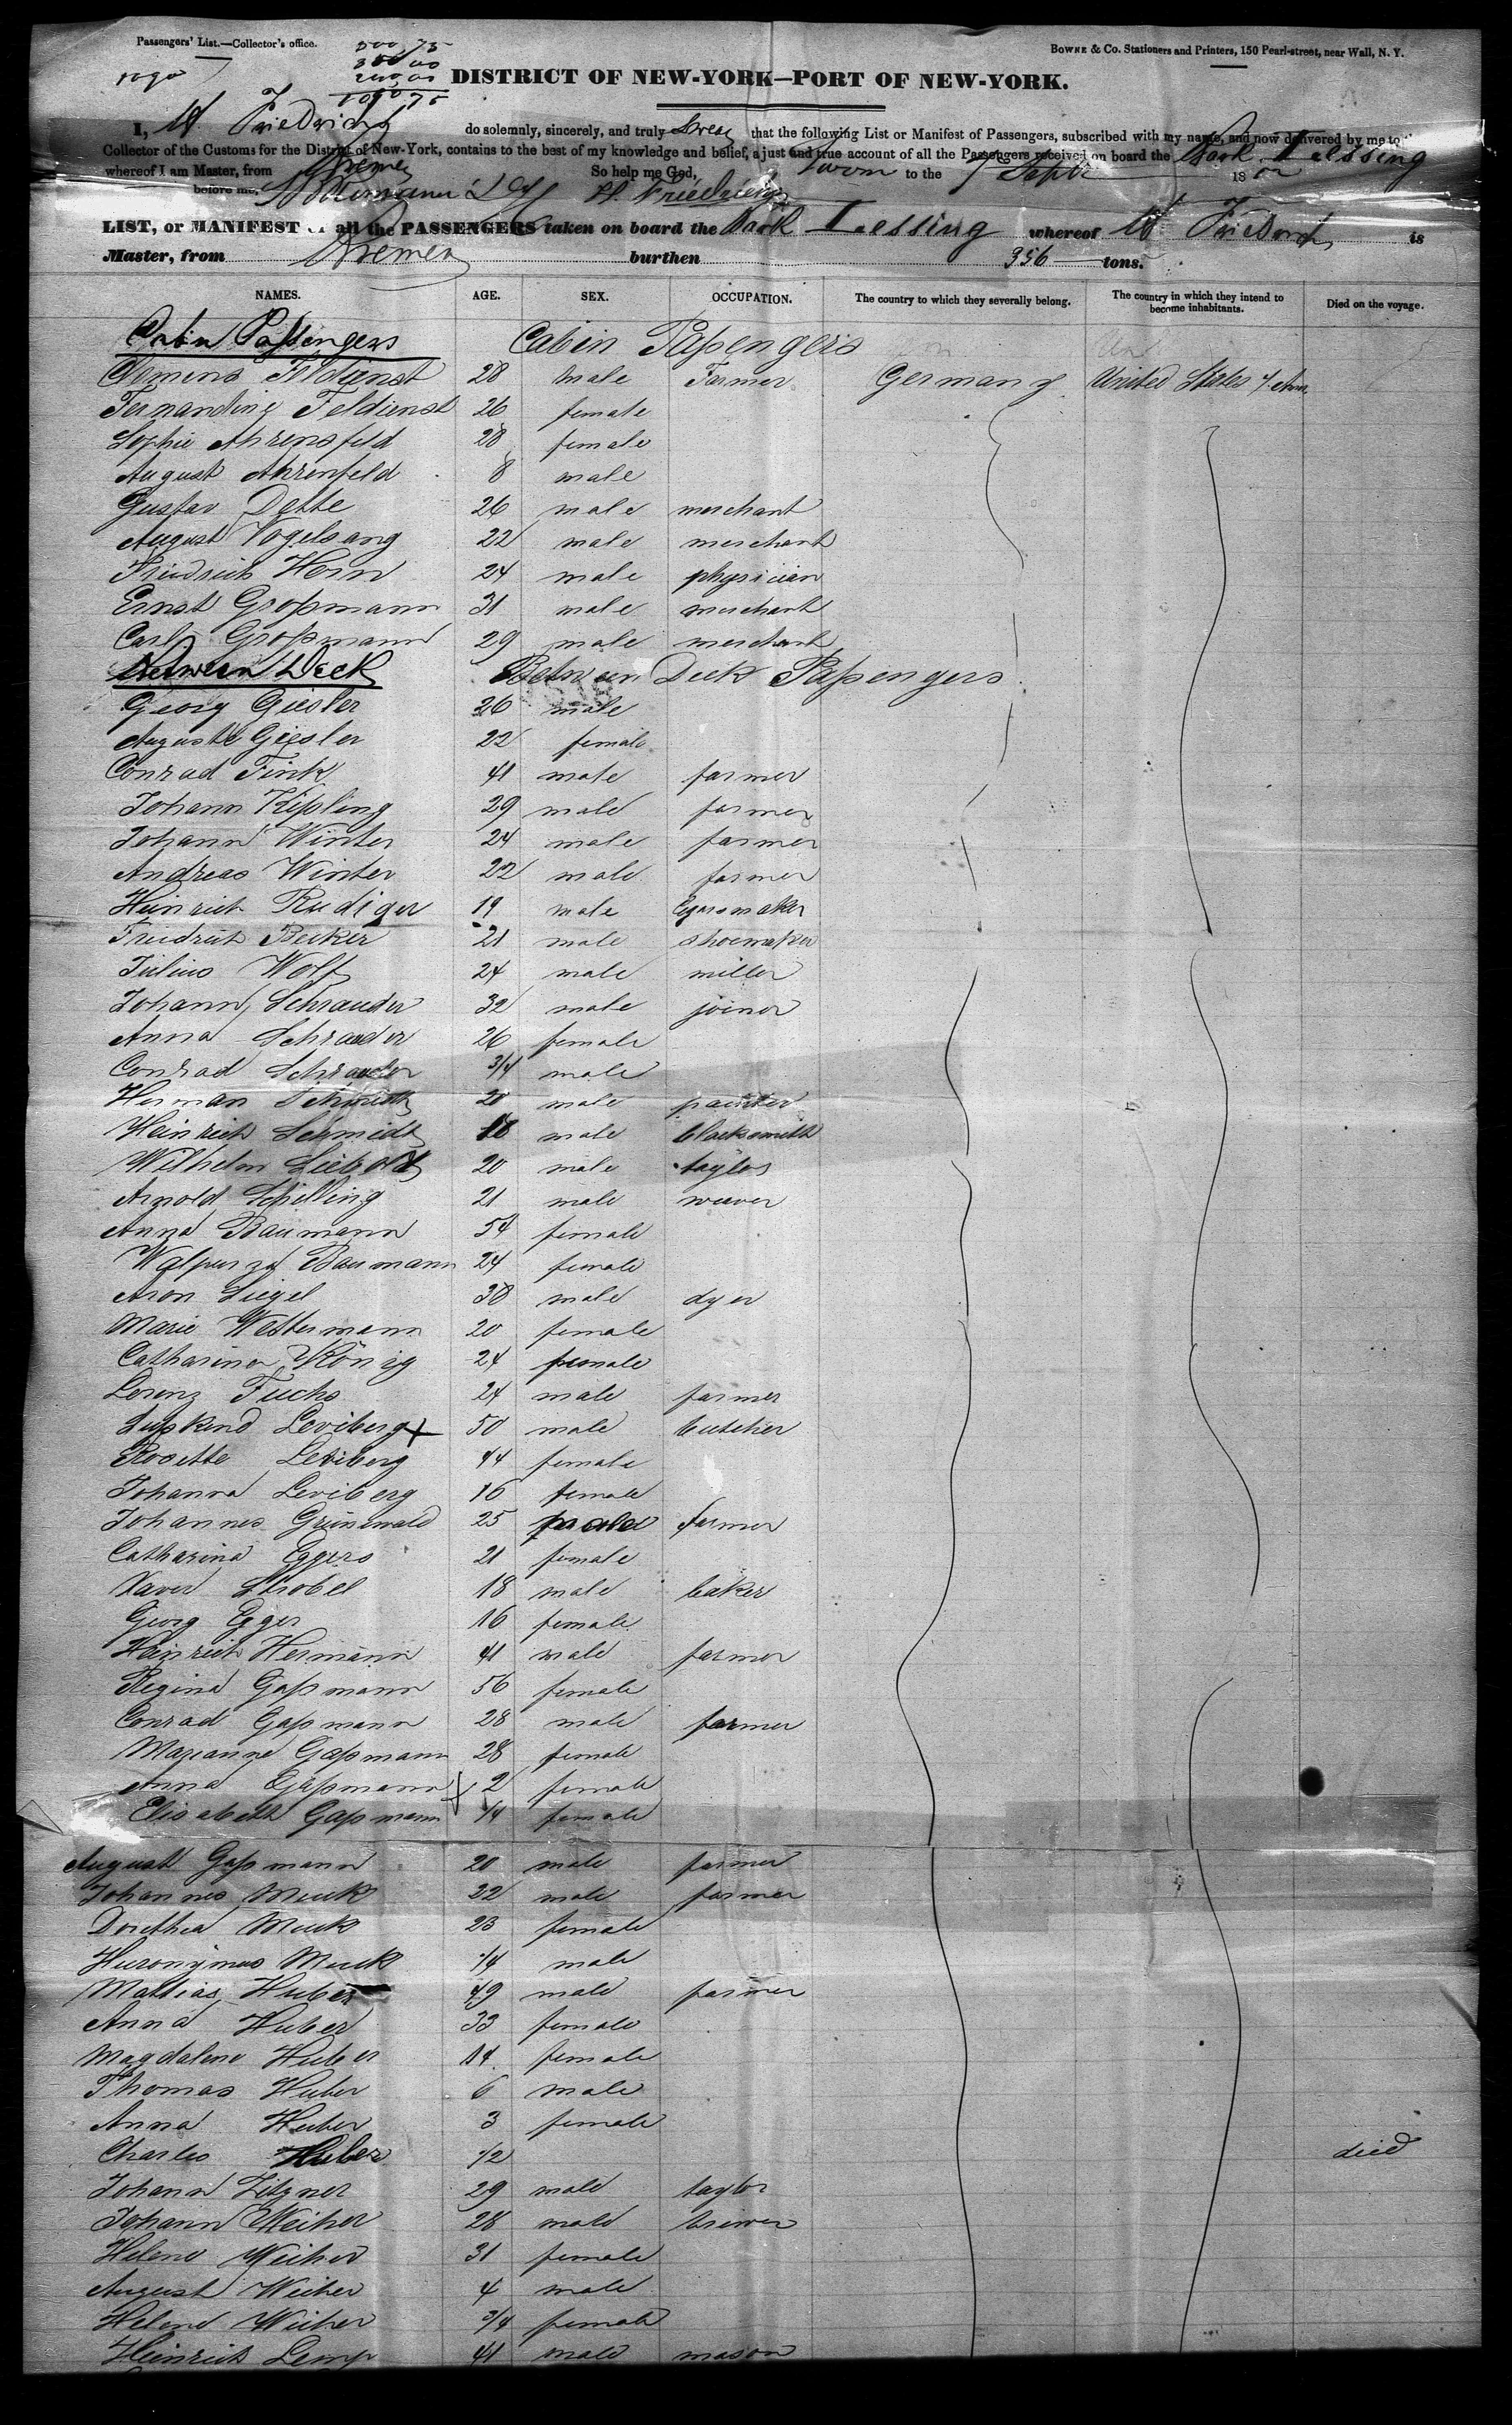 Passengers' List.—Collector's office.
BOWNE & Co. Stationers and Printers, 150 Pearl-street, near Wall, N. Y.
DISTRICT OF NEW-YORK—PORT OF NEW-YORK.
I, H. Friedrichs do solemnly, sincerely, and truly swear that the following List or Manifest of Passengers, subscribed with my name, and now delivered by me to
Collector of the Customs for the District of New-York, contains to the best of my knowledge and belief, a just and true account of all the Passengers received on board the Bark Lessing
whereof I am Master, from Bremen So help me God, Sworn to the 7 Septr 18
before me, H. Friedrichs
LIST, or MANIFEST all the PASSENGERS taken on board the Bark Lessing whereof H. Friedrichs is
Master, from Bremen burthen 356 tons.
NAMES. AGE. SEX. OCCUPATION. The country to which they severally belong. The country in which they intend to become inhabitants. Died on the voyage.
Cabin Passengers Cabin Passengers
Clemens Feldienst 28 male Farmer Germany United States of Am.
Fernandine Feldienst 26 female
Sophie Ahrensfeld 28 female
August Ahrenfeld 8 male
Gustav Dette 26 male merchant
August Vogelsang 22 male merchant
Friedrich Horn 24 male physician
Ernst Großmann 31 male merchant
Carl Großmann 29 male merchant
Between Deck Between Deck Passengers
Georg Giesler 26 male
Auguste Giesler 22 female
Conrad Fink 41 male farmer
Johann Kipling 29 male farmer
Johann Winter 24 male farmer
Andreas Winter 22 male farmer
Heinrich Rudiger 19 male Cigarsmaker
Friedrich Becker 21 male shoemaker
Julius Wolf 24 male miller
Johann Schrauder 32 male joiner
Anna Schrauder 26 female
Conrad Schrauder 3/4 male
Herman Schmidt 20 male painter
Heinrich Schmidt 18 male blacksmith
Wilhelm Liebold 20 male taylor
Arnold Schilling 21 male weaver
Anna Baumann 54 female
Walpurga Baumann 24 female
Aron Siegel 38 male dyer
Marie Westermann 20 female
Catharina König 24 female
Lorenz Fuchs 24 male farmer
Suskind Leviberg 50 male butcher
Rosette Leviberg 44 female
Johanna Leviberg 16 female
Johannes Grünewald 25 male farmer
Catharina Eggers 21 female
Xaver Strobel 18 male baker
Georg Egger 16 female
Heinrich Hermann 41 male farmer
Regina Gaßmann 56 female
Conrad Gaßmann 28 male farmer
Marianne Gaßmann 28 female
Anna Gaßmann 2 female
Elisabeth Gaßmann 1/4 female
August Gaßmann 20 male farmer
Johannes Muck 22 male farmer
Dorethea Muck 23 female
Huronÿmus Muck 1/4 male
Mattias Huber 49 male farmer
Anna Huber 33 female
Magdalene Huber 14 female
Thomas Huber 6 male
Anna Huber 3 female
Charles Huber 1/2 died
Johann Litzner 29 male taylor
Johann Weiher 28 male brewer
Helene Weiher 31 female
August Weiher 4 male
Helene Weiher 3/4 female
Heinrich Lemp 41 male mason